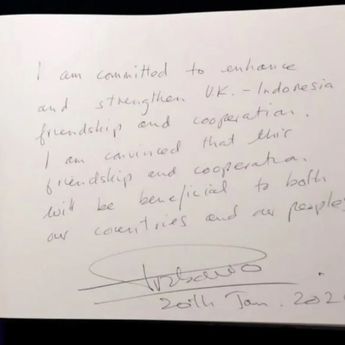 I am committed to enhance
and strengthen U.K. - Indonesia
friendship and cooperation.
I am convinced that this
friendship and cooperation
will be beneficial to both
our countries and our peoples
20th Jan. 202